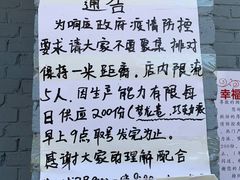 通告
为响应政府疫情防控
要求请大家不要聚集 排对
保持一米距离，店内限流
5人，因生产能力有限每
日供应200份(梦龙卷，巧克力
早上9点取号发完为止。
感谢大家助理解配合
幸福